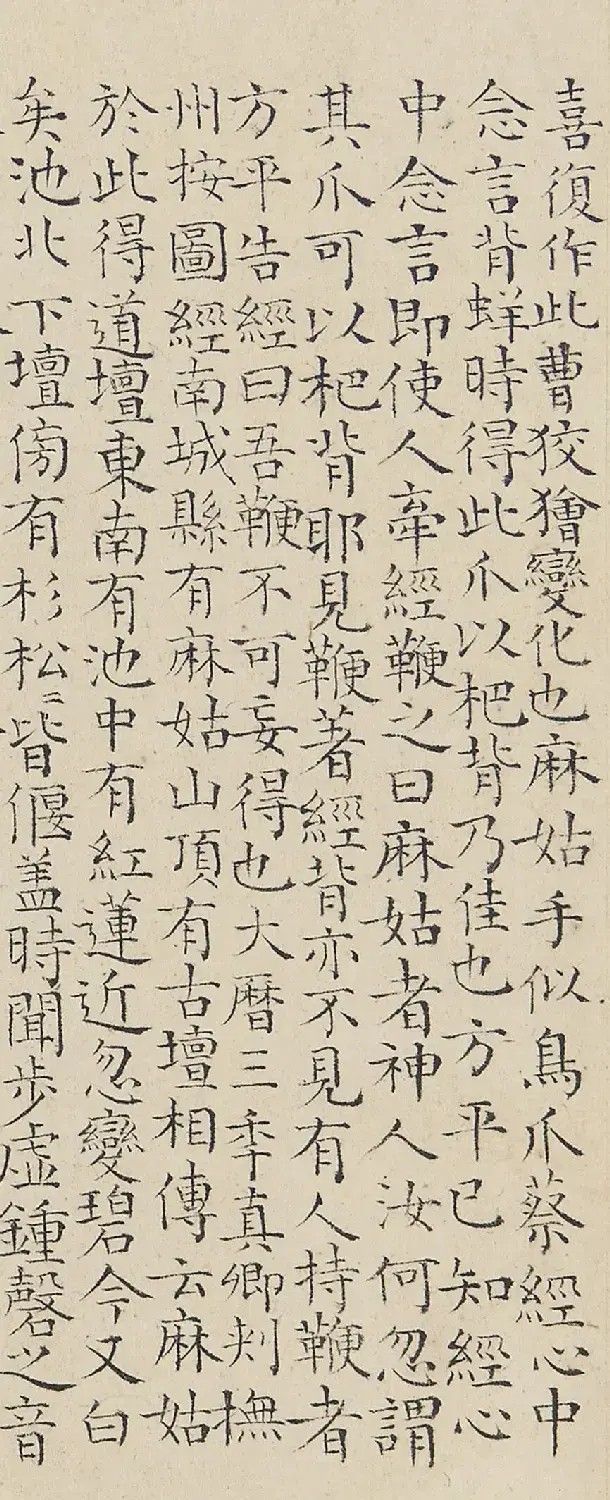 喜復作此曹狡獪變化也麻姑手似鳥爪蔡經心中
念言背蛘時得此爪以杷背乃佳也方平已知經心
中念言即使人牽經鞭之曰麻姑者神人汝何忽謂
其爪可以杷背耶見鞭著經背亦不見有人持鞭者
方平告經曰吾鞭不可妄得也大曆三秊真卿刾撫
州按圖經南城縣有麻姑山頂有古壇相傳云麻姑
於此得道壇東南有池中有紅蓮近忽變碧今又白
矣池北下壇傍有杉松〻皆偃盖時聞步虛鍾磬之音